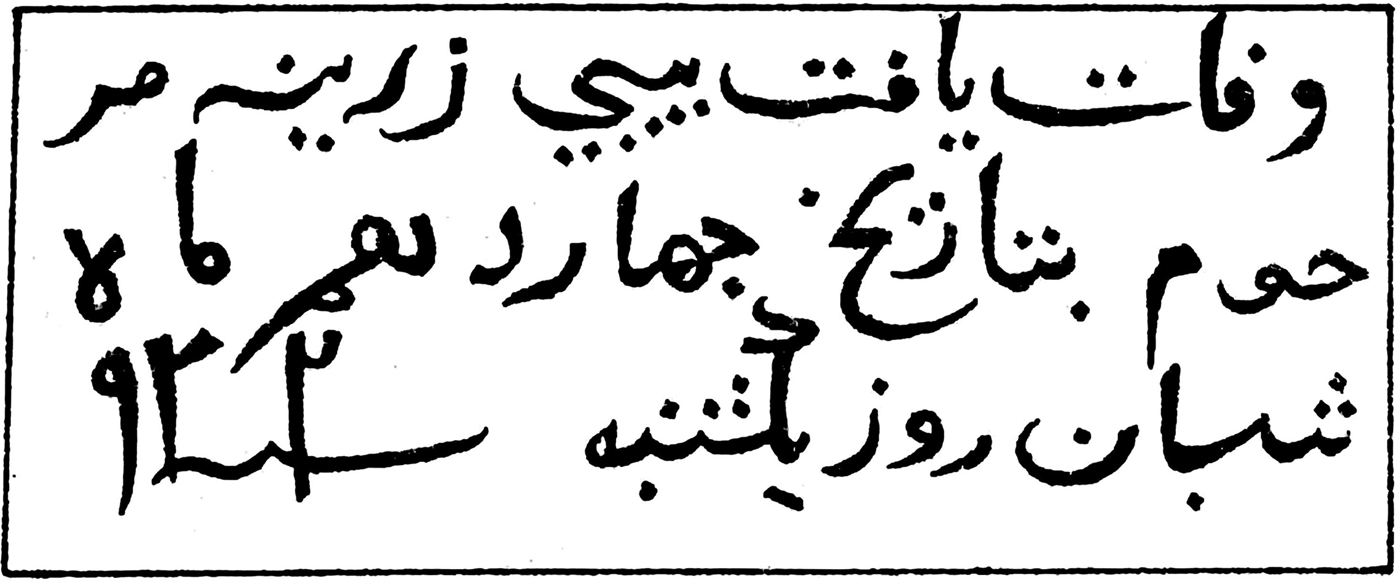 وفات یافت بیبی زرینه مر
حوم بتاریخ جهاردهم ماه
شبان روز یکشنبه سنه ۹۳۲